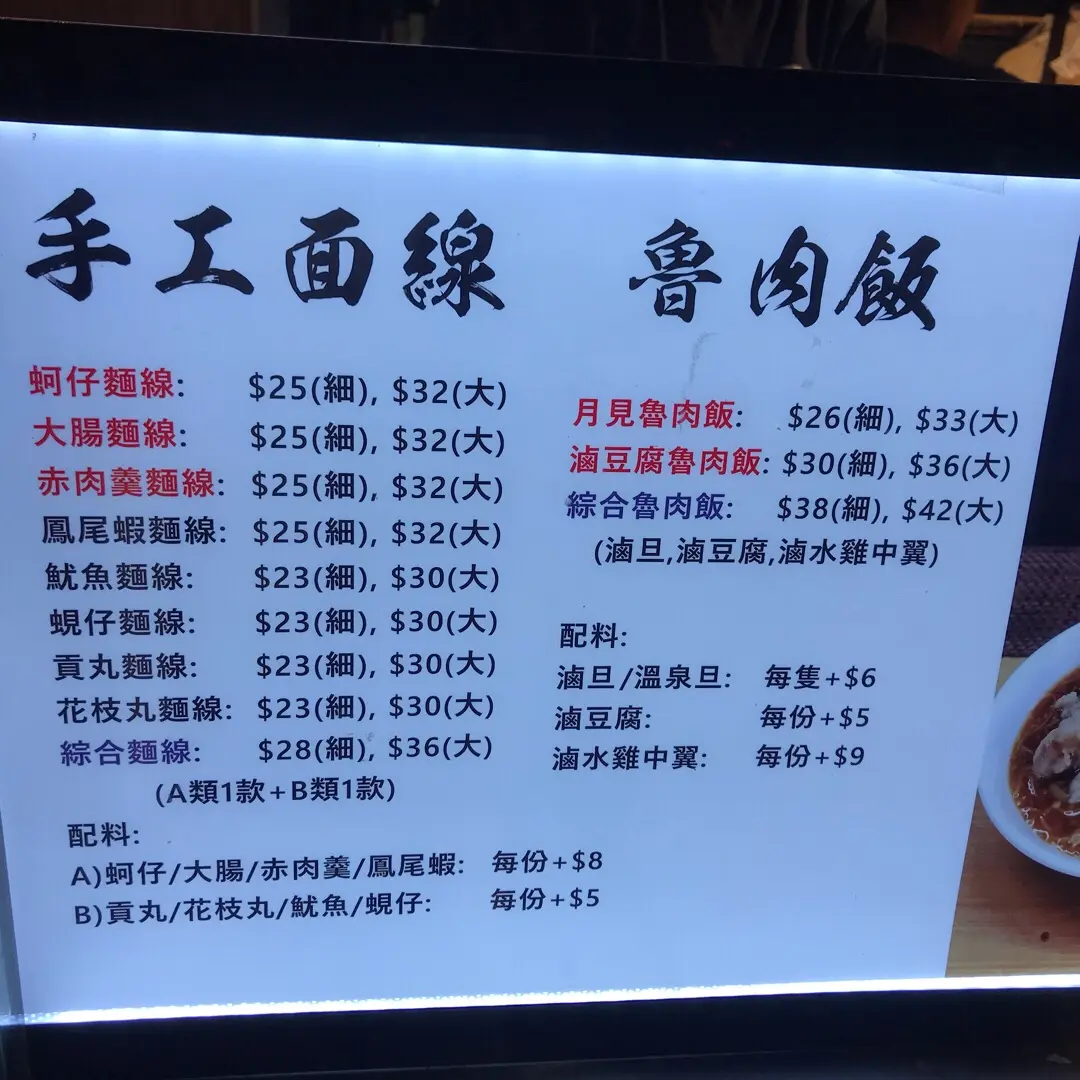 手工面線
蚵仔麵線: $25(細), $32(大)
大腸麵線: $25(細), $32(大)
赤肉羹麵線: $25(細), $32(大)
鳳尾蝦麵線: $25(細), $32(大)
魷魚麵線: $23(細), $30(大)
蜆仔麵線: $23(細), $30(大)
貢丸麵線: $23(細), $30(大)
花枝丸麵線: $23(細), $30(大)
綜合麵線: $28(細), $36(大)
(A類1款+B類1款)
配料:
A)蚵仔/大腸/赤肉羹/鳳尾蝦: 每份+$8
B)貢丸/花枝丸/魷魚/蜆仔: 每份+$5
魯肉飯
月見魯肉飯: $26(細), $33(大)
滷豆腐魯肉飯: $30(細), $36(大)
綜合魯肉飯: $38(細), $42(大)
(滷旦,滷豆腐,滷水雞中翼)
配料:
滷旦/溫泉旦: 每隻+$6
滷豆腐: 每份+$5
滷水雞中翼: 每份+$9